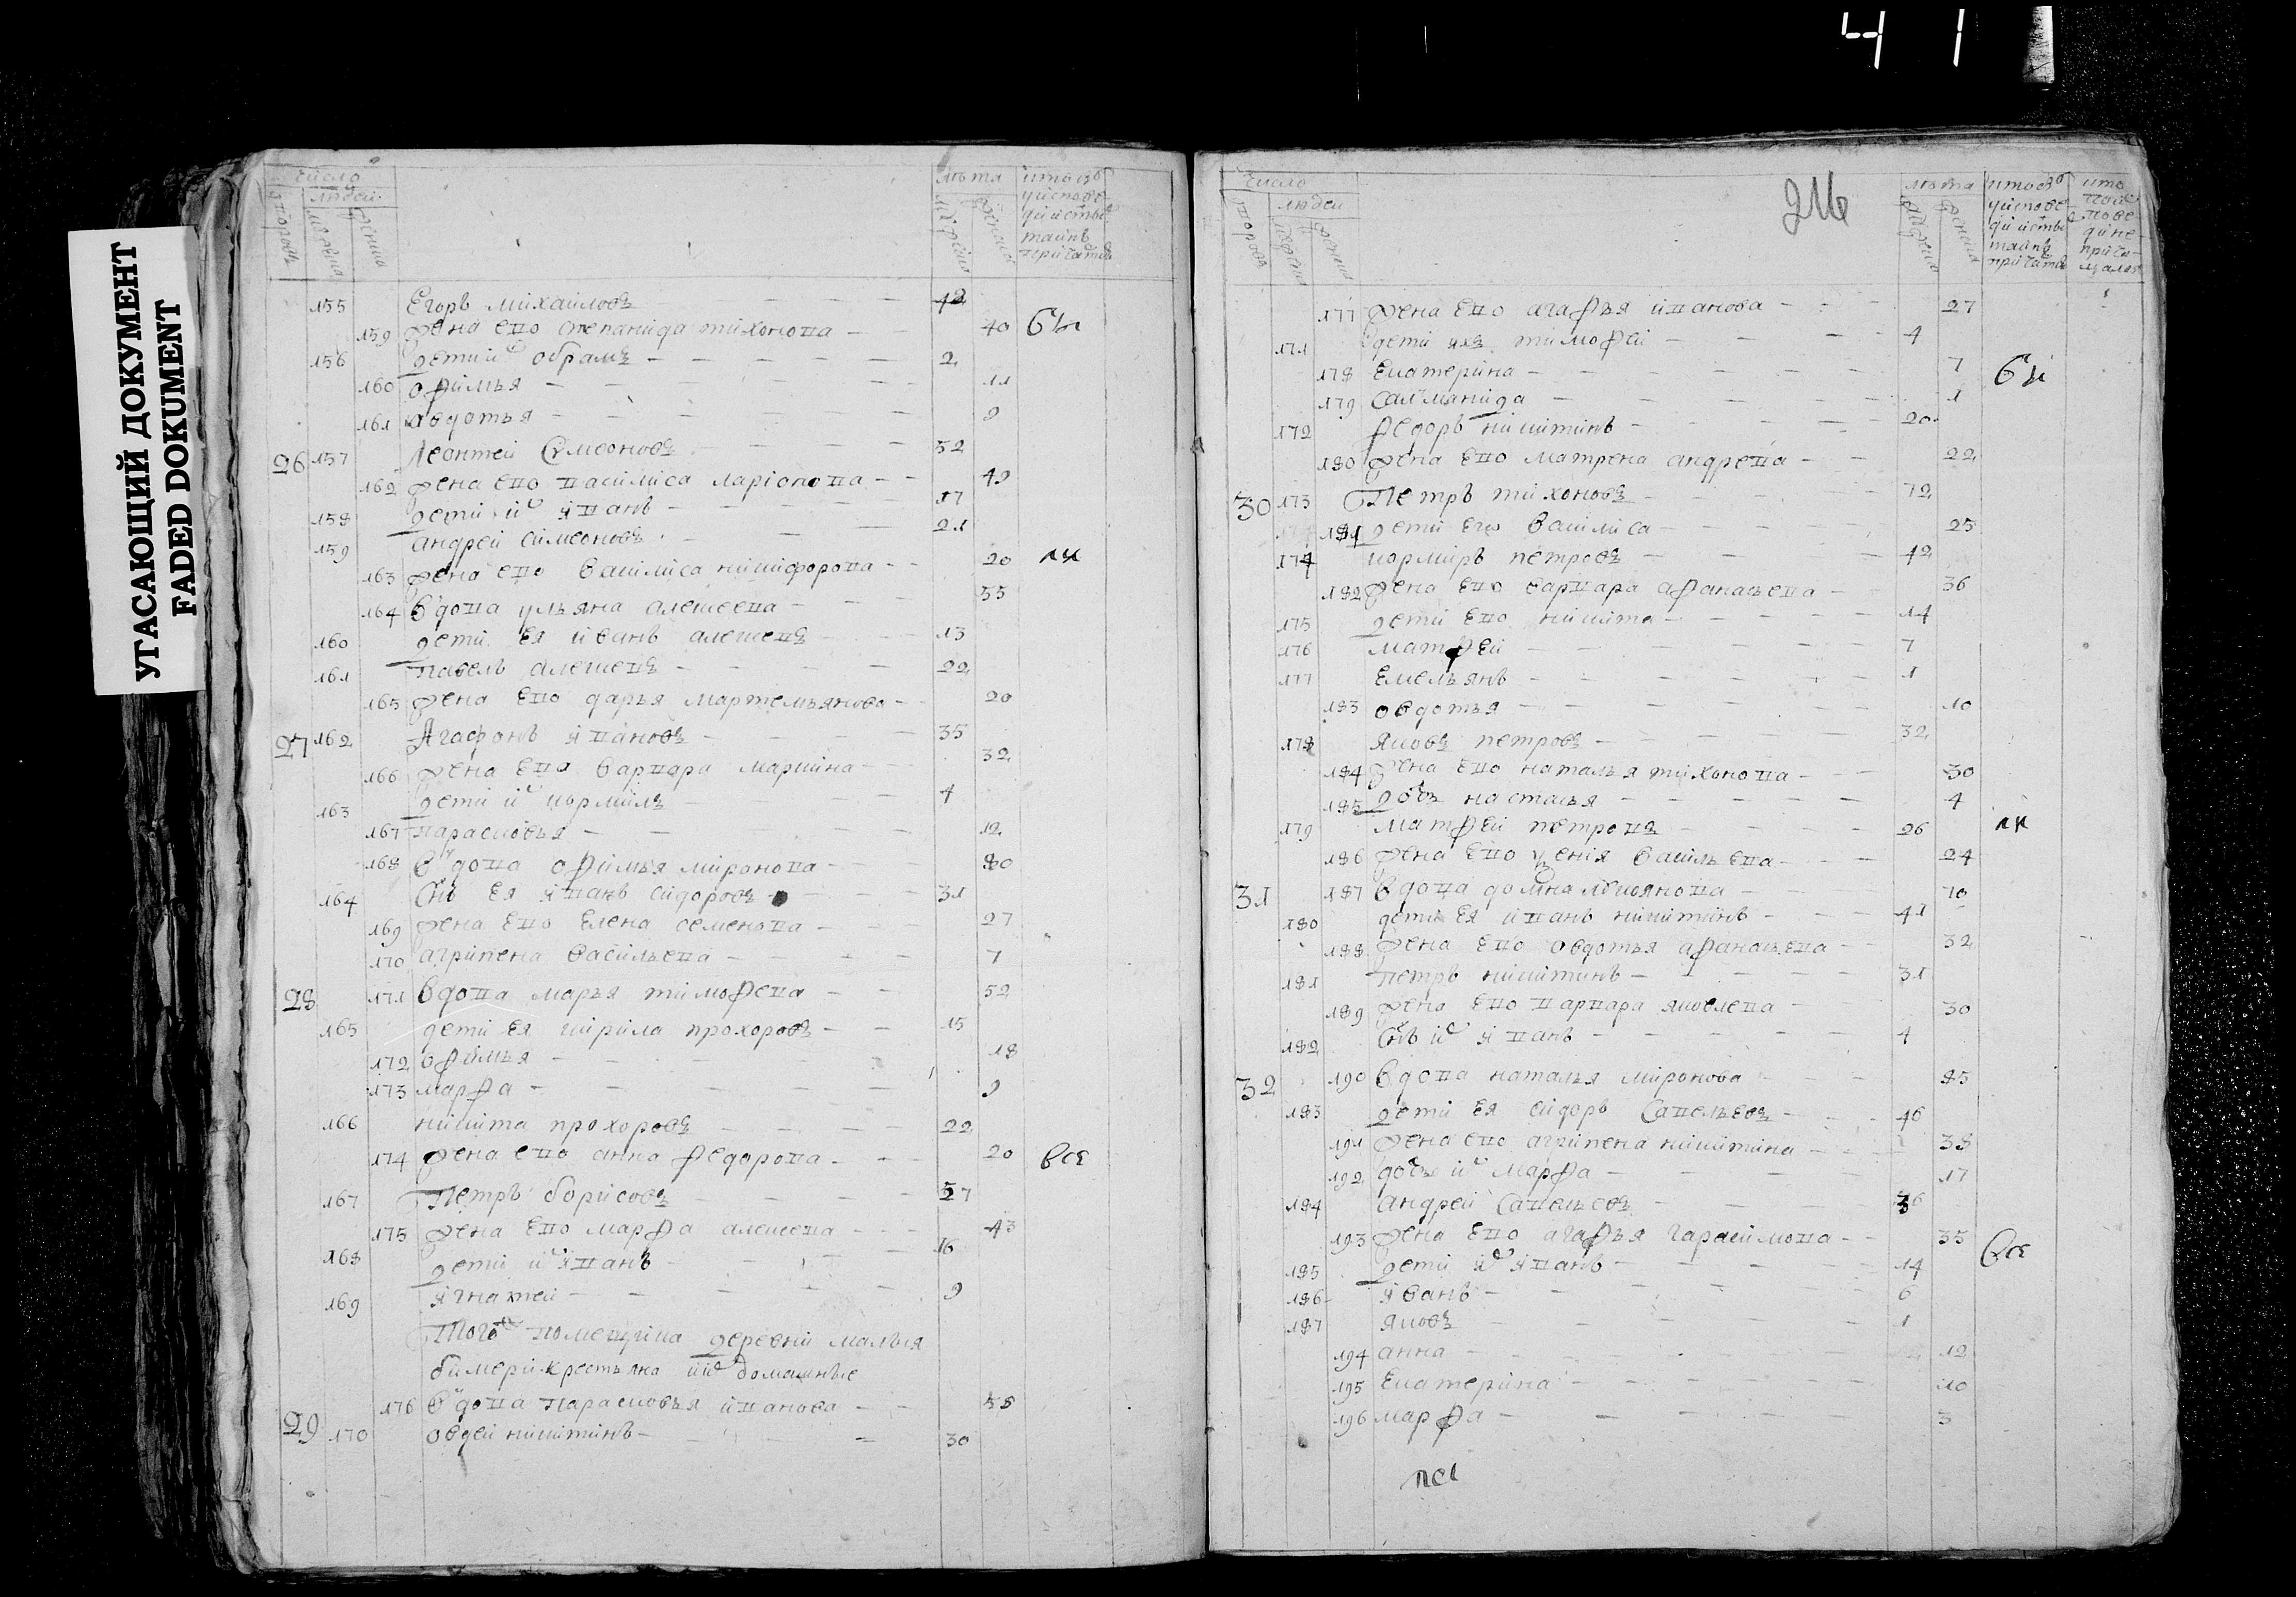 4 1
УГАСАЮЩИЙ ДОКУМЕНТ
FADED DOKUMENT
число
людей
лѣта
155 Егоръ михаиловъ 42
159 жена ево степанида тихонова 40 бы
156 дети их обрамъ 2
160 офимья 11
161 авдотья 9
26 157 Леонтеи Симеоновъ 52
162 жена ево василиса ларионова 49
158 дети их иванъ 17
159 андреи симеоновъ 21
163 жена ево василиса никифорова 20 ли
164 вдова ульяна алексеева 55
160 дети ея иванъ алексевъ 13
161 павелъ алексевъ 22
165 жена ево дарья мартемьянова 20
27 162 Агафонъ ивановъ 35
166 жена ево варвара маркина 32
163 дети их кормилъ 4
167 парасковья 12
168 вдова офимья миронова 80
164 снъ ея иванъ сидоровъ 31
169 жена ево елена семенова 27
170 агрипена васильева 7
28 171 вдова марья тимофева 52
165 дети ея кирила прохоровъ 15
172 офимья 18
173 марфа 9
166 никита прохоровъ 22
174 жена ево анна федорова 20 все
167 Петръ борисовъ 57
175 жена ево марфа алексева 43
168 дети их иванъ 16
169 игнатеи 9
Того помещика деревни малыя
бимери крестьяна и их домашные
176 вдова парасковья иванова 58
29 170 овдеи никитинъ 30
216
число
людеи
лѣта
177 жена ево агафья иванова 27
171 дети ихъ тимофеи 4
178 Екатерина 7 бы
179 Саламанида 1
172 федоръ никитинъ 20
180 жена ево матрена андрева 22
30 173 Петръ тихоновъ 72
181 дети его василиса 25
174 кормиръ петровъ 42
182 жена ево варвара афанасьева 36
175 дети ево никита 14
176 матфеи 7
177 Емельянъ 1
183 овдотья 10
178 яковъ петровъ 32
184 жена ево наталья тихонова 30
185 дочь настасья 4
179 матфеи петровъ 26 ли
186 жена ево ксенія васильева 24
31 187 вдова домна лукоянова 70
180 дети ея иванъ никитинъ 41
188 жена ево овдотья афанасьева 32
181 петръ никитинъ 31
189 жена ево варвара яковлева 30
182 снъ их иванъ 4
32 190 вдова наталья миронова 85
183 дети ея сидоръ Савельевъ 46
191 жена ево агрипена никитина 38
192 дочь их марфа 17
184 андреи Савельевъ 36
193 жена ево агафья гарасимова 35 все
185 дети их иванъ 14
186 иванъ 6
187 яковъ 1
194 анна 12
195 Екатерина 10
196 марфа 3